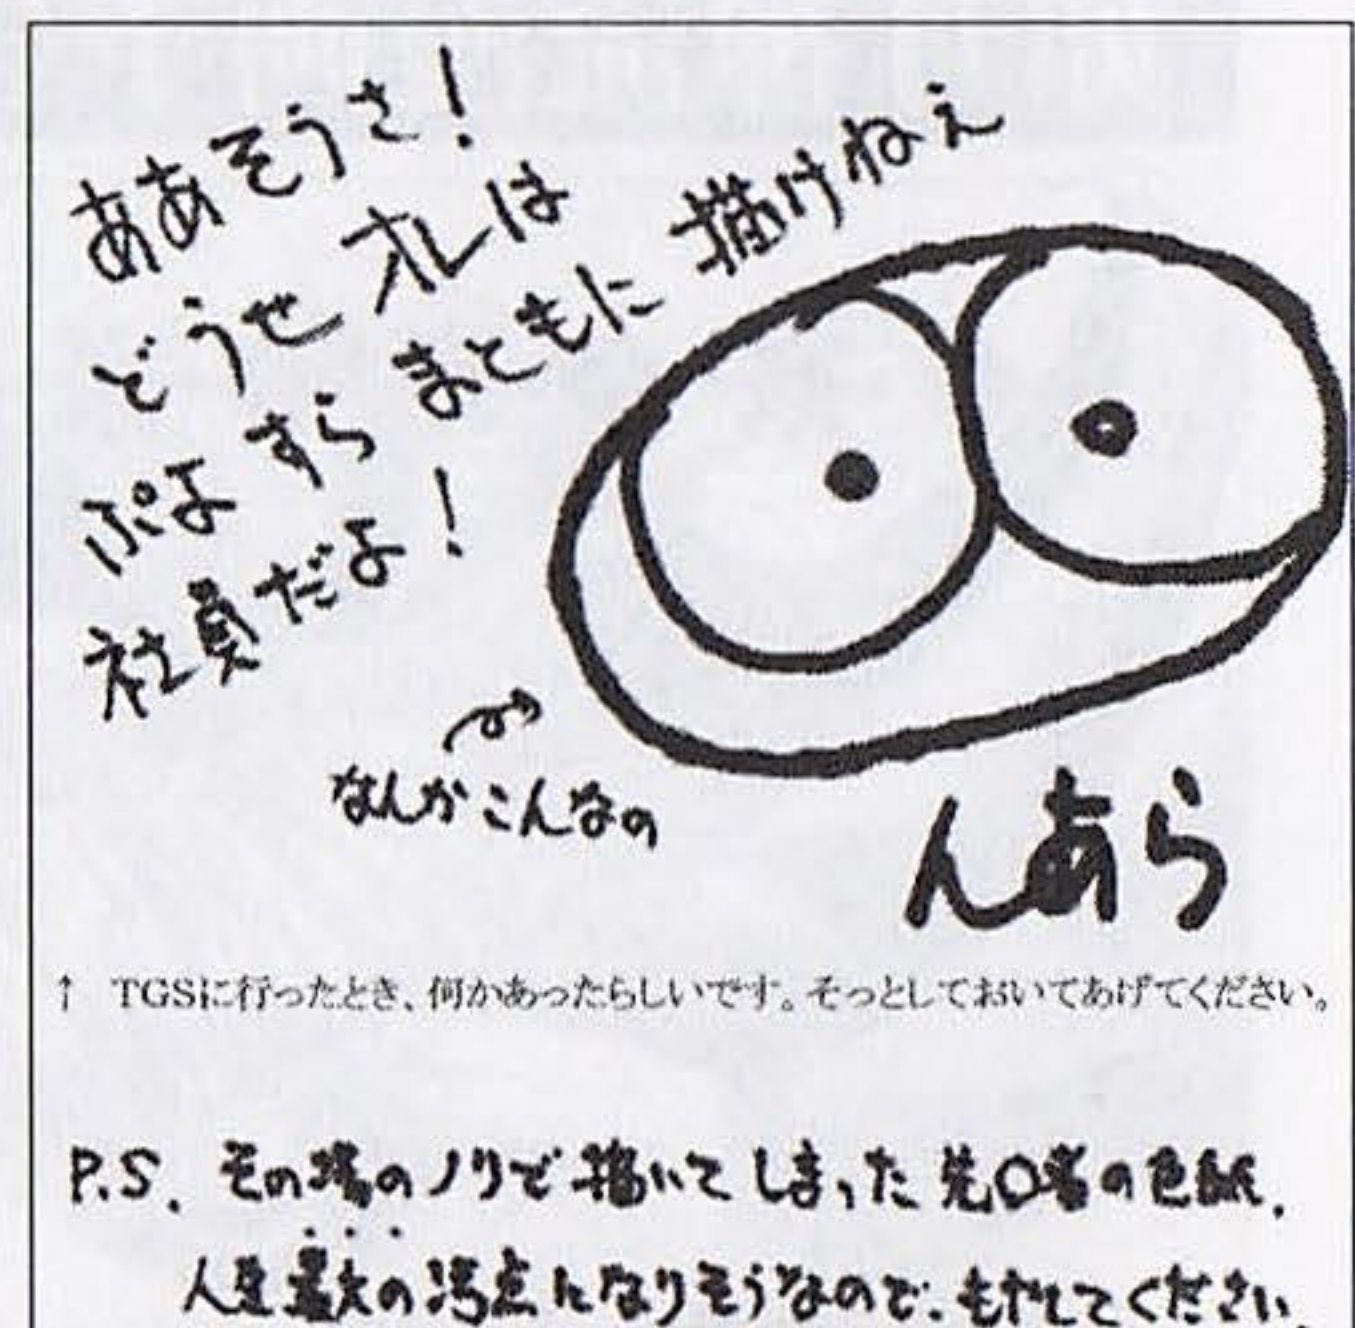 ああそうさ！
どうせオレは
ぷよすらまともに描けねえ
社員だよ！
なんかこんなの
んあら
↑ TGSに行ったとき、何かあったらしいです。そっとしておいてあげてください。
P.S. その場のノリで描いてしまった先〇者の色紙.
人生最大の汚点になりそうなので、もやしてください.